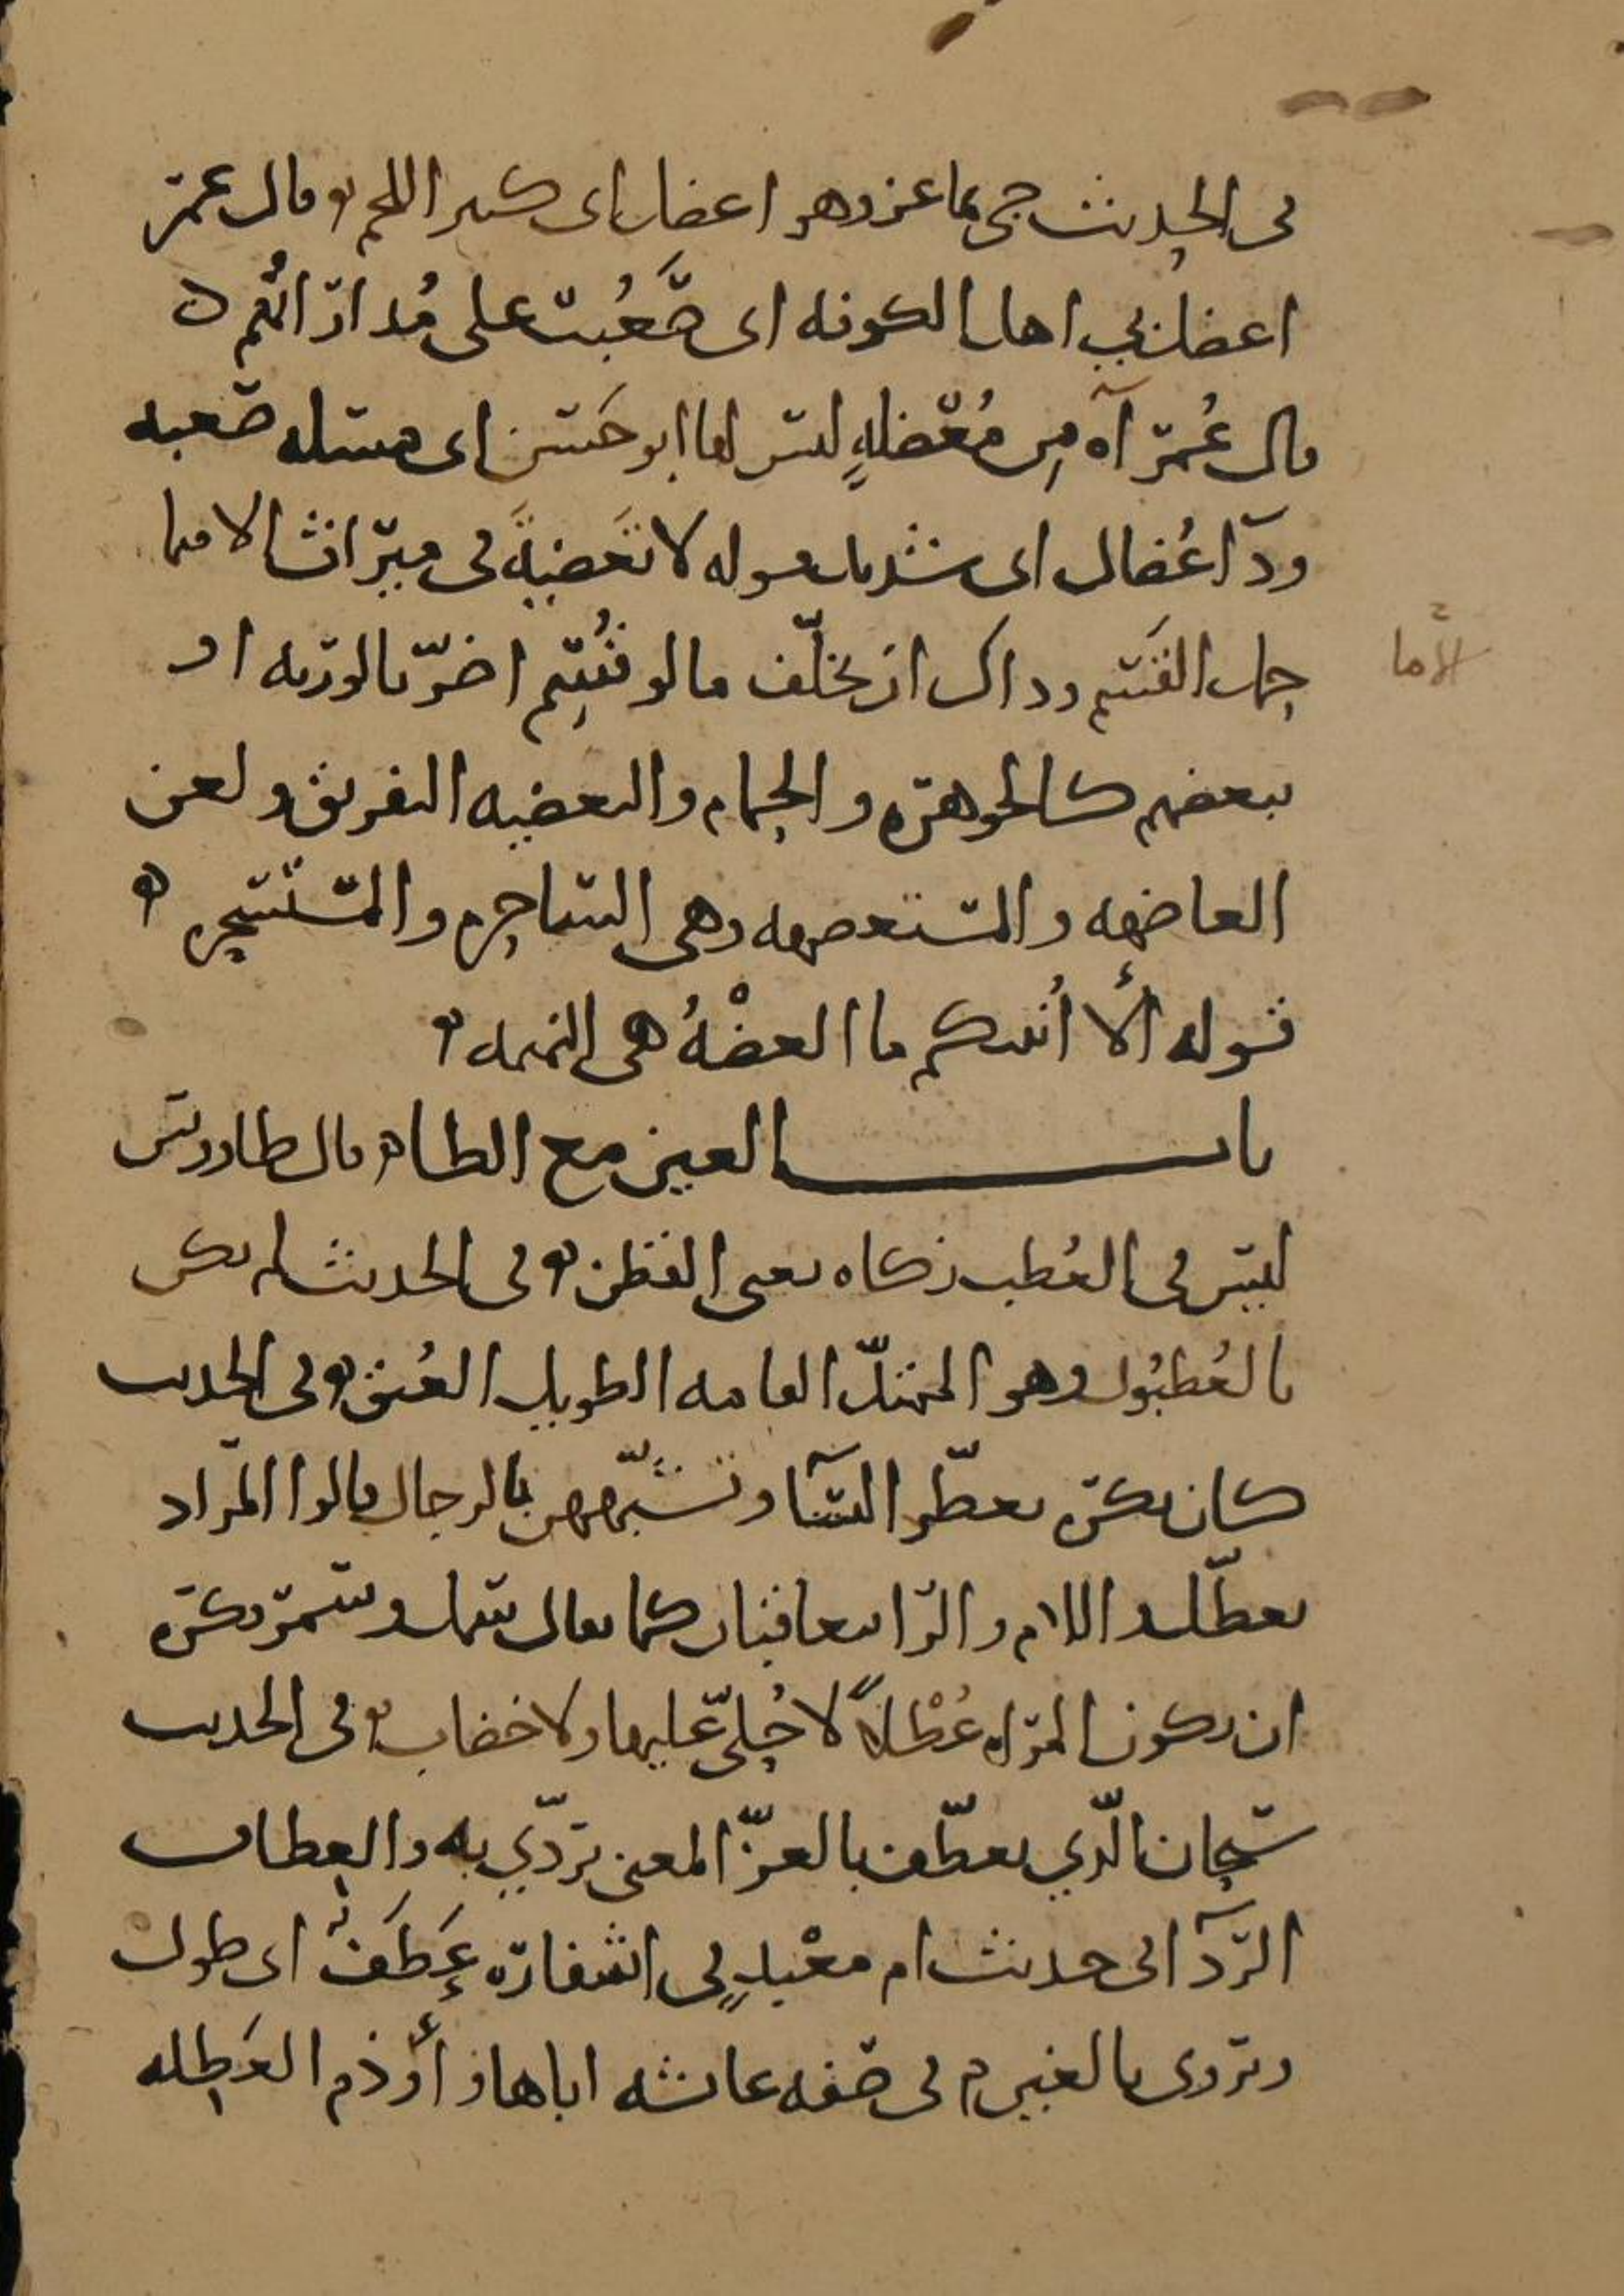 في الحديث جي بماعز وهو اعضل اى كثير اللحم وقال عمر
اعضل بي اهل الكوفه اى صَعُبت على مُداراتُهم
قال عُمر آه مِن مُعْضلةٍ ليس لها ابو حَسن اى مسئله صعبه
ودآ اعُضال اى شديد قوله لا تَعَضِيةَ في ميراث الا فيما
حمل القَسْم وذاك ان يخلّف ما لو قُسِم اضرّ بالورثه او
ببعضهم كالجوهره والحمام والتعضيه التفريق ولعن
العاضهه والمستعضهه وهي الساحِره والمستسحِره
قوله ألا اُنبئكم ما العضْهُ هي النميمه
باب العين مع الطاء قال طاووس
ليس في العُطب زكاه يعني القطن وفي الحديث لم يكن
بالعُطبُول وهو الممتدّ القامه الطويل العُنق وفي الحديث
كان يكره تعطّر النسآ وتشبّههن بالرجال قالوا المراد
تعطّل واللام والرا يتعاقبان كما يقال سمل وسمر وكره
ان تكون المراه عُطْلاً لا حُليّ عليها ولا خضاب وفي الحديث
سبحان الّذي تعطّف بالعزّ المعنى تردّي به والعِطاف
الردآ الى حديث ام معْبدٍ في اشفاره عَطَفٌ اى طول
وتروى بالغين م في صفه عائشه اباها فأوذم العَطِله
الّا ما